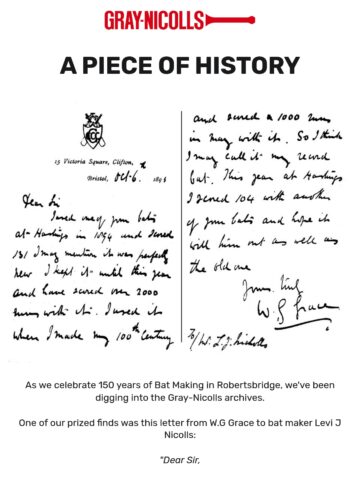 GRAY-NICOLLS
A PIECE OF HISTORY
15 Victoria Square, Clifton,
Bristol, Oct. 6. 1895
Dear Sir
I used one of your bats
at Hastings in 1894 and scored
131 I may mention it was perfectly
new I kept it until this year
and have scored over 2000
runs with it. I used it
when I made my 100th Century
and scored a 1000 runs
in May with it. So I think
I may call it my record
bat. This year at Hastings
I scored 104 with another
of your bats and hope it
will turn out as well as
the old one
Yours truly
W. G Grace
To/ Mr. L. J. Nicholls
As we celebrate 150 years of Bat Making in Robertsbridge, we've been
digging into the Gray-Nicolls archives.
One of our prized finds was this letter from W.G Grace to bat maker Levi J
Nicolls:
"Dear Sir,